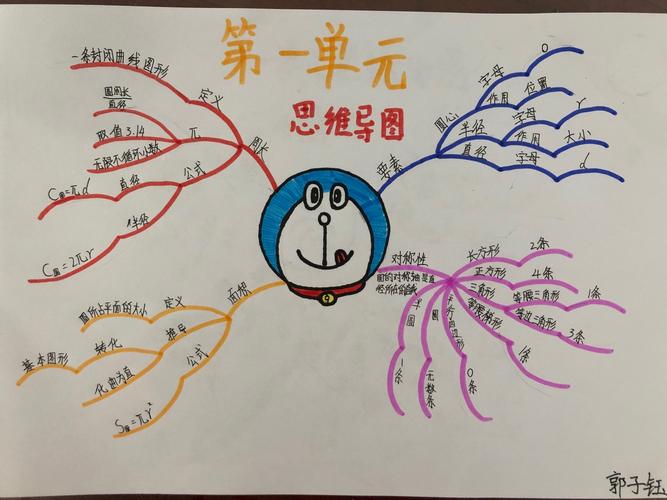 第一单元
思维导图
周长
定义
一条封闭曲线图形
π
圆周长
直径
取值3.14
无限不循环小数
公式
直径
C圆=πd
半径
C圆=2πr
要素
圆心
字母
O
作用
位置
半径
字母
r
作用
大小
直径
字母
d
面积
定义
圆所占平面的大小
推导
转化
基本图形
化曲为直
公式
S圆=πr²
对称性
圆的对称轴是直
径所在的直线
长方形
2条
正方形
4条
三角形
等腰三角形
1条
等边三角形
3条
等腰梯形
1条
平行四边形
0条
圆
无数条
半圆
1条
郭子钰